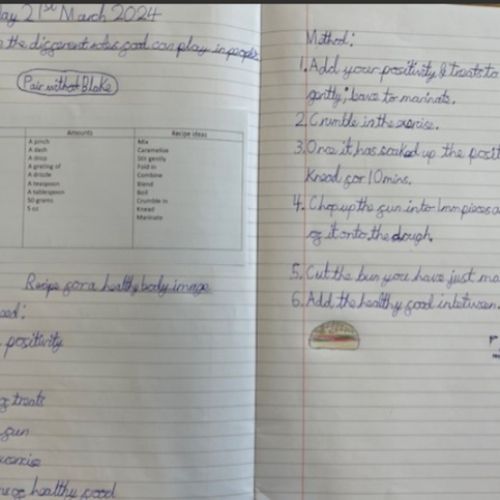 ay 21st March 2024
the different roles food can play in people
Pair with Blake
Amounts
Recipe ideas
A pinch
A dash
A drop
A grating of
A drizzle
A teaspoon
A tablespoon
50 grams
5 oz
Mix
Caramelise
Stir gently
Fold in
Combine
Blend
Boil
Crumble in
Knead
Marinate
Recipe for a healthy body image
positivity
treats
fun
healthy food
Method:
1. Add your positivity & treats to
gently; leave to marinate.
2. Crumble in the exercise.
3. Once it has soaked up the posit
Knead for 10 mins.
4. Chop up the fun into 1mm pieces a
of it onto the dough.
5. Cut the bun you have just ma
6. Add the healthy food inbetween.